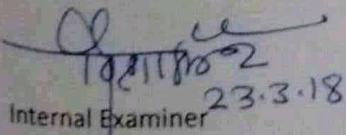 23.3.18
Internal Examiner